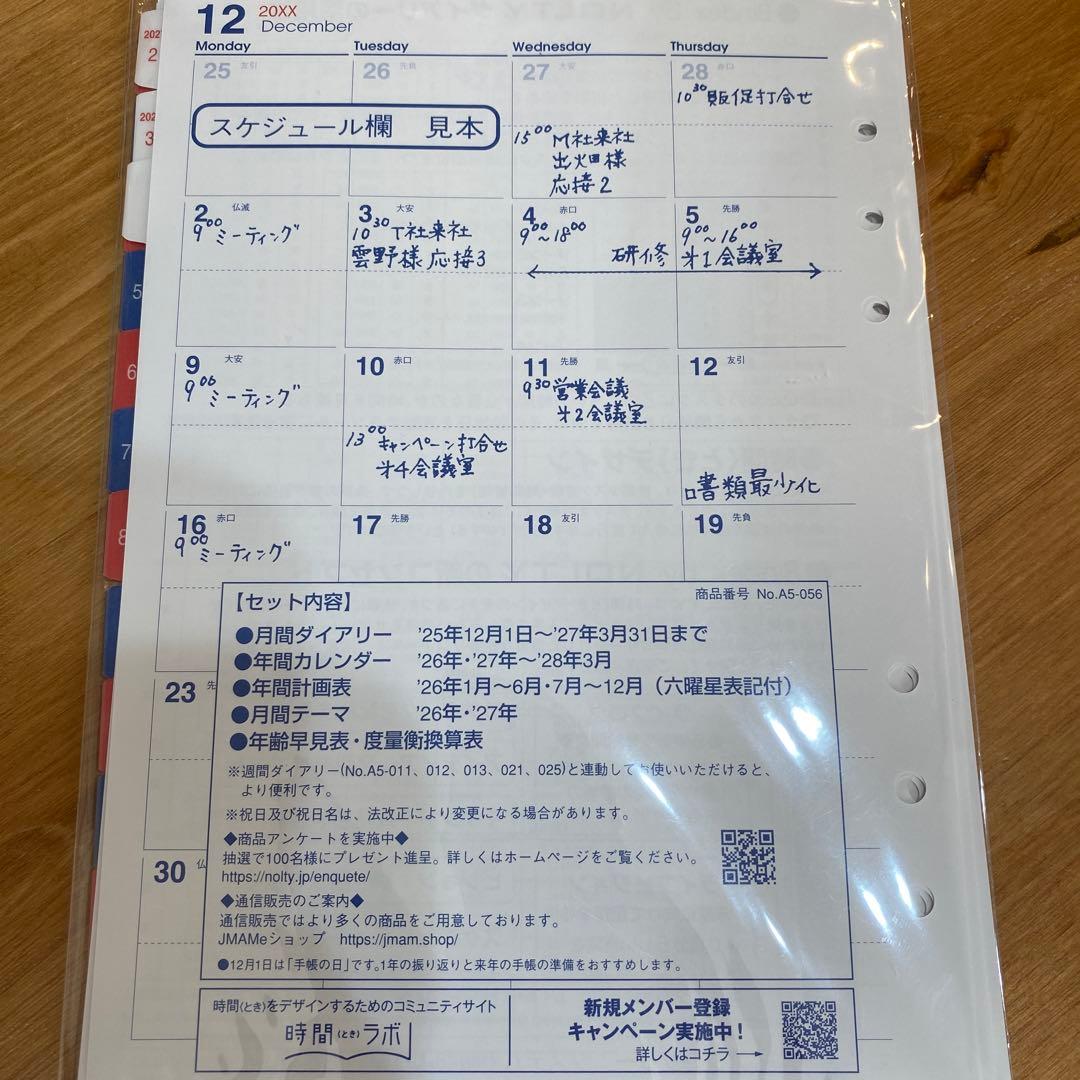 12 20XX
December
Monday Tuesday Wednesday Thursday
25 友引 26 先負 27 大安 28 赤口
10:30 販促打合せ
スケジュール欄 見本
15:00 M社来社
出火田様
応接2
2 仏滅 3 大安 4 赤口 5 先勝
9:00 ミーティング 10:30 T社来社 9:00~18:00 9:00~16:00
雲野様 応接3 研修 才1会議室
9 大安 10 赤口 11 先勝 12 友引
9:00 ミーティング 9:30 営業会議
才2会議室
13:00 キャンペーン打合せ
才4会議室
書類最少化
16 赤口 17 先勝 18 友引 19 先負
9:00 ミーティング
【セット内容】 商品番号 No.A5-056
●月間ダイアリー '25年12月1日〜'27年3月31日まで
●年間カレンダー '26年・'27年〜'28年3月
●年間計画表 '26年1月〜6月・7月〜12月（六曜星表記付）
●月間テーマ '26年・'27年
●年齢早見表・度量衡換算表
※週間ダイアリー(No.A5-011、012、013、021、025)と連動してお使いいただけると、
より便利です。
※祝日及び祝日名は、法改正により変更になる場合があります。
◆商品アンケートを実施中◆
抽選で100名様にプレゼント進呈。詳しくはホームページをご覧ください。
https://nolty.jp/enquete/
◆通信販売のご案内◆
通信販売ではより多くの商品をご用意しております。
JMAMeショップ https://jmam.shop/
●12月1日は「手帳の日」です。1年の振り返りと来年の手帳の準備をおすすめします。
23 先
30 仏
時間(とき)をデザインするためのコミュニティサイト
時間(とき)ラボ
新規メンバー登録
キャンペーン実施中！
詳しくはコチラ
202
2
202
3
5
6
7
8